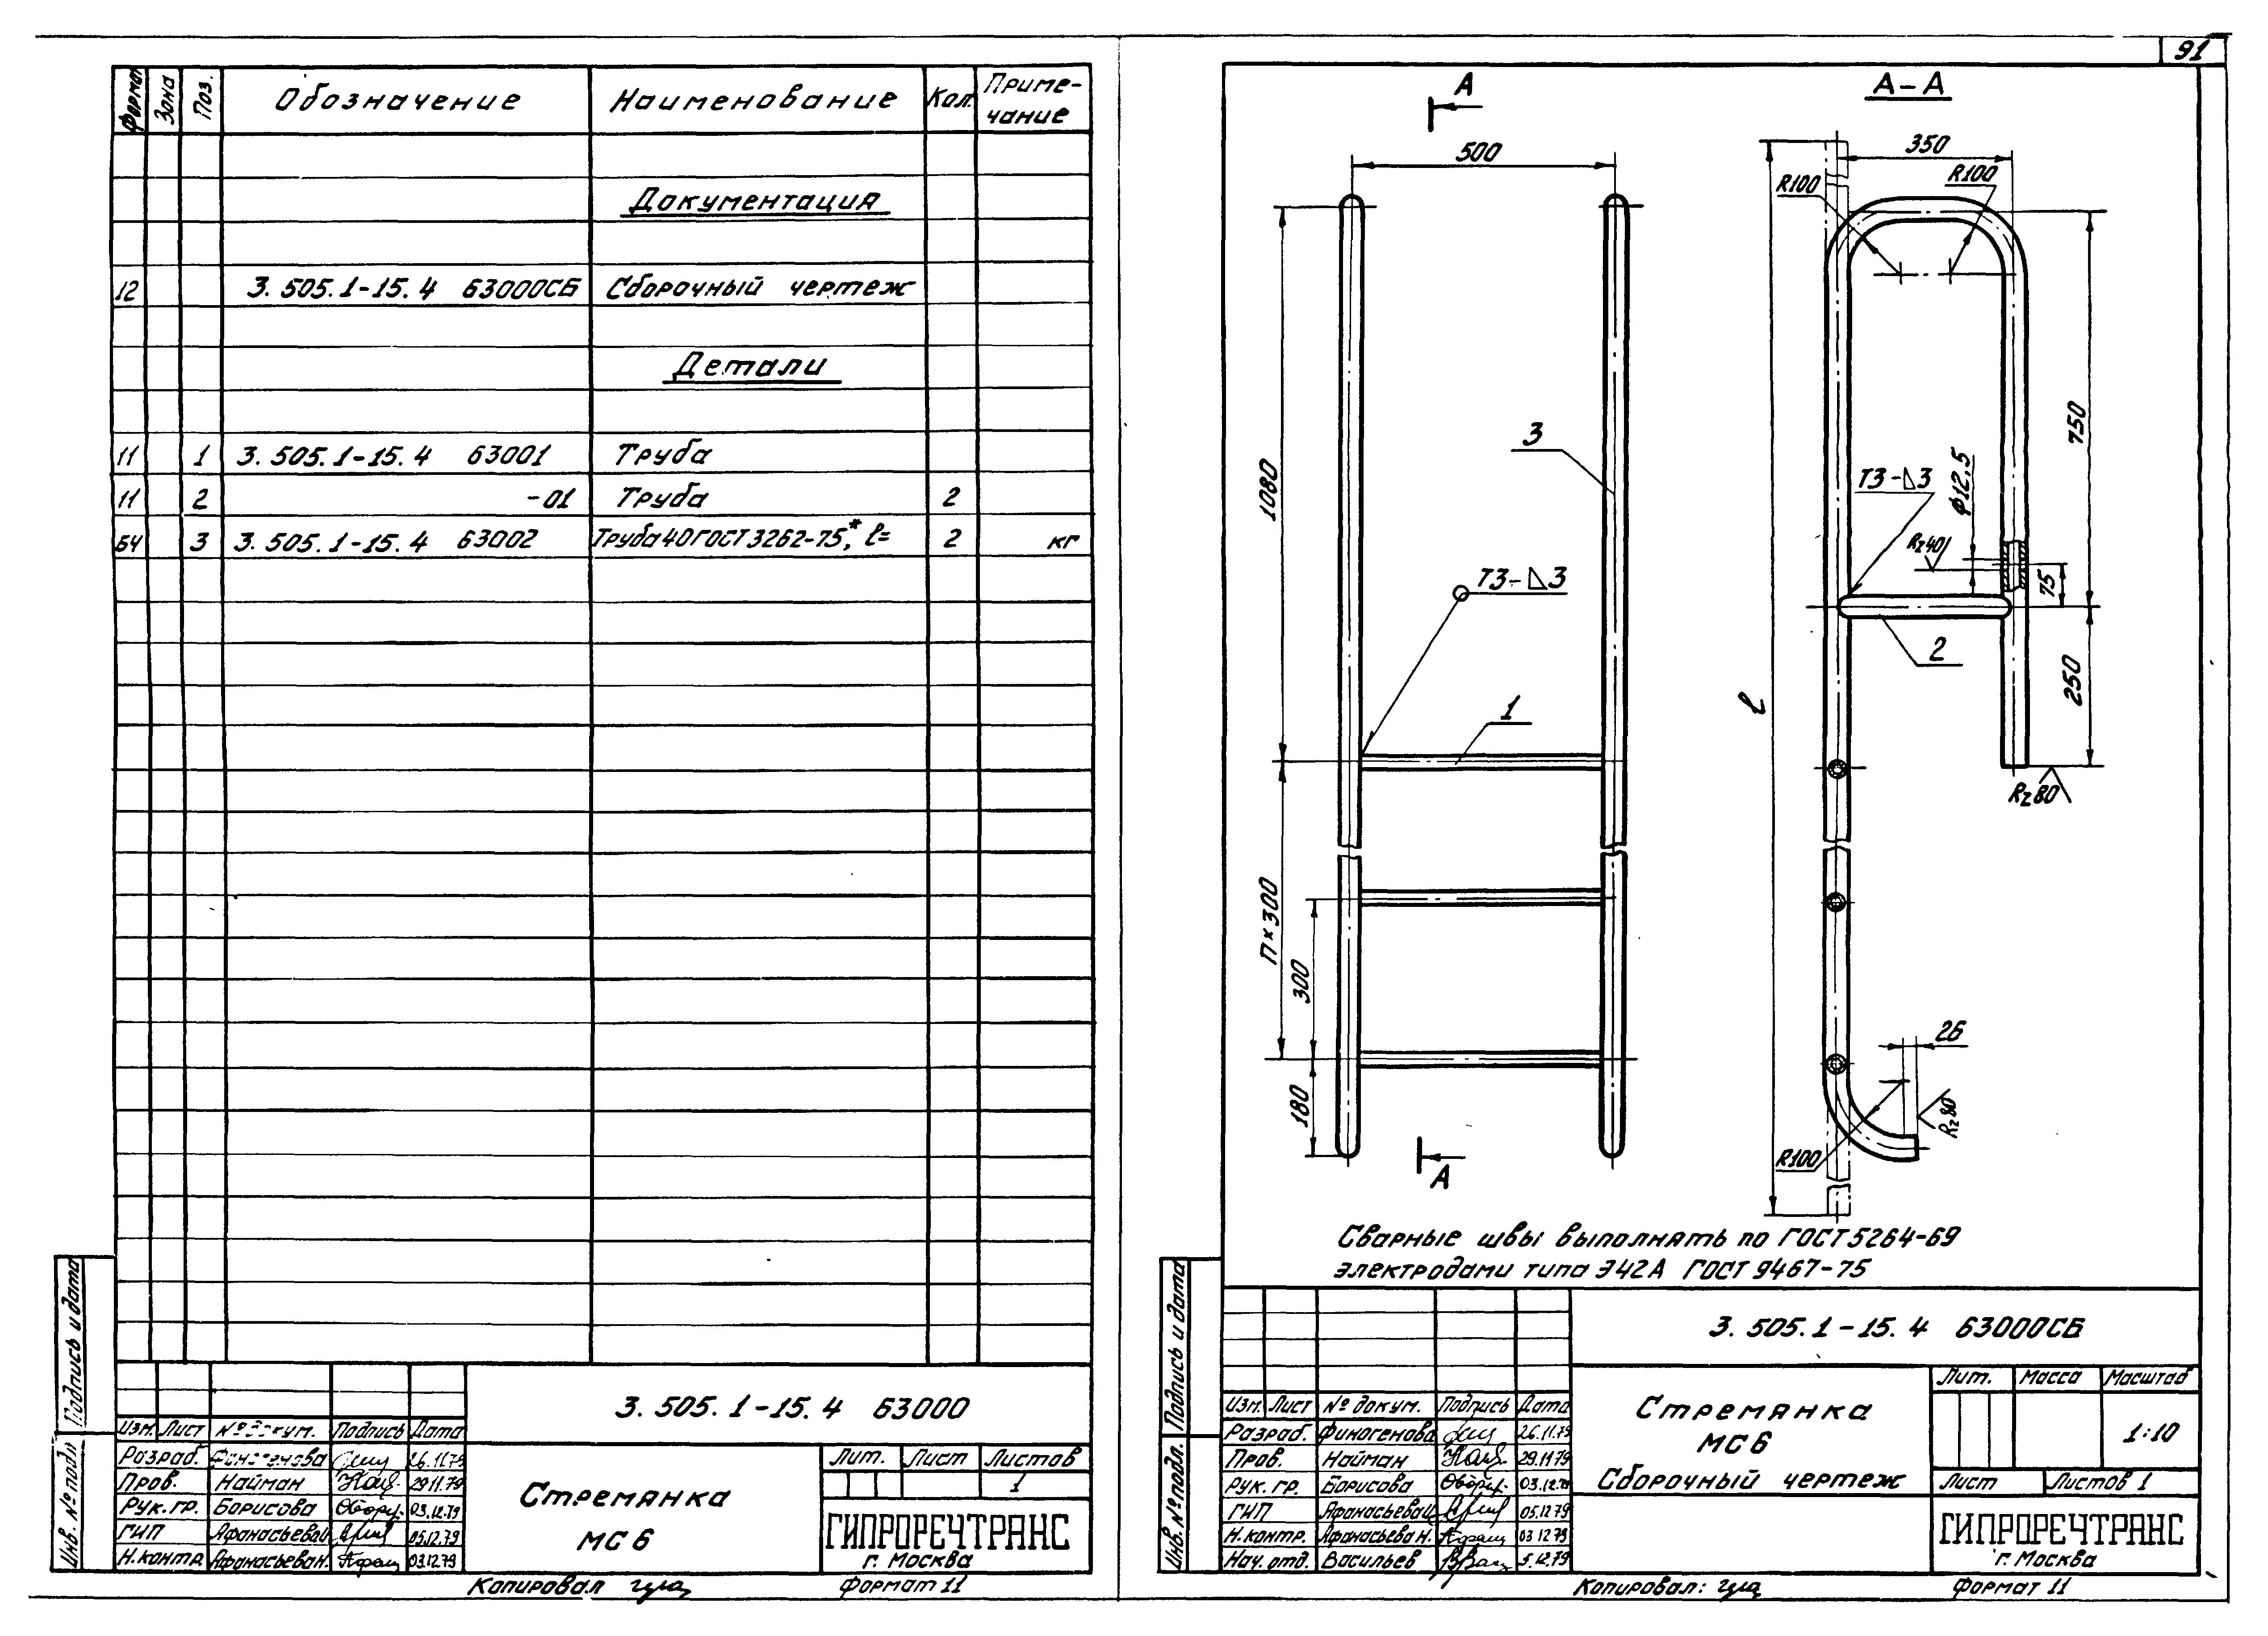 91
Формат Зона Поз. Обозначение Наименование Кол. Приме-
чание
Документация
12 3.505.1-15.4 63000СБ Сборочный чертеж
Детали
11 1 3.505.1-15.4 63001 Труба
11 2 -01 Труба 2
БЧ 3 3.505.1-15.4 63002 Труба 40 ГОСТ 3262-75*, ℓ= 2 кг
Подпись и дата
Инв. № подл
3.505.1-15.4 63000
Изм. Лист № докум. Подпись Дата
Разраб. Финогенова 26.11.79
Пров. Найман 29.11.79
Рук. гр. Борисова 03.12.79
ГИП Афанасьева 05.12.79
Н.контр. Афанасьева Н. 03.12.79
Стремянка
МС 6
Лит. Лист Листов
1
ГИПРОРЕЧТРАНС
г. Москва
Копировал
Формат 11
А
А-А
500
350
R100
R100
1080
3
750
Т3-⊿3
Ф12,5
Rz40
75
Т3-⊿3
2
250
ℓ
1
Rz80
п×300
300
26
180
Rz80
R100
А
Сварные швы выполнять по ГОСТ 5264-69
электродами типа Э42А ГОСТ 9467-75
Подпись и дата
Инв. № подл.
3.505.1-15.4 63000СБ
Изм. Лист № докум. Подпись Дата
Разраб. Финогенова 26.11.79
Пров. Найман 29.11.79
Рук. гр. Борисова 03.12.79
ГИП Афанасьева 05.12.79
Н.контр. Афанасьева Н. 03.12.79
Нач. отд. Васильев 5.12.79
Стремянка
МС 6
Сборочный чертеж
Лит. Масса Масштаб
1:10
Лист Листов 1
ГИПРОРЕЧТРАНС
г. Москва
Копировал:
Формат 11